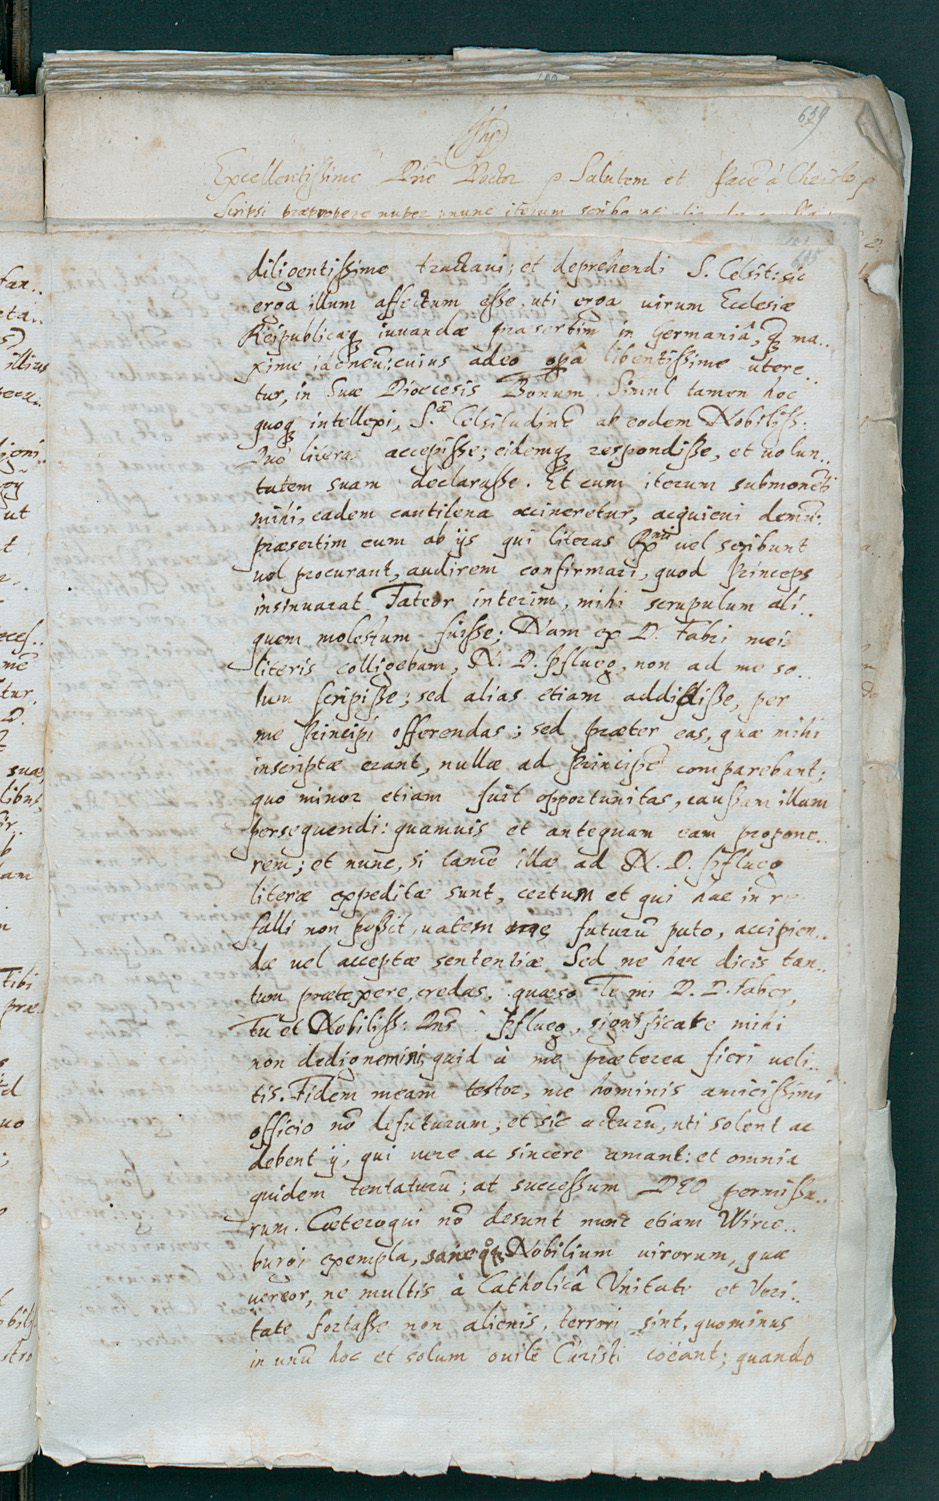 659
Excellentissime Dne Doctor p Salutem et Pacē á Christo p
Scripsi præpropere nuper; nunc iterum scribo
diligentissime tractaui; et deprehendi S. Celsit: sic
erga illum affectum esse, uti erga uirum Ecclesiæ
Reipublicæq̨ iuuandæ præsertim in Germaniâ, q̨ ma..
xime idoneū; cuius adeo opâ libentissime utere..
tur, in Suæ Diœcesis Bonum. Simul tamen hoc
quoq̨ intellexi, S.ā Celsitudinē ab eodem Nobiliss:
literas accepisse; eidemq̨ respondisse, et uolun..
tatem suam declarasse. Et cum iterum submonēti
mihi, eadem cantilena accineretur, acquieui demū:
præsertim cum ab ijs qui literas uel scribunt
uel procurant, audirem confirmari, quod Princeps
insinuarat. Fateor interim, mihi scrupulum ali..
quem molestum fuisse; Nam ex D. Fabri mei
literis colligebam, N. D. Pflueg, non ad me so..
lum scripisse; sed alias etiam addidisse, per
me Principi offerendas; sed præter eas, quæ mihi
inscriptæ erant, nullæ ad Principē comparebant;
quo minor etiam fuit opportunitas, caussam illam
persequendi: quamuis et antequam eam propone..
rem; et nunc, si tamē illæ ad N. D. Pflueg
literæ expeditæ sunt, certum et qui hac in re
falli non possit, uatem me futurū puto, accipien..
dæ uel acceptæ sententiæ. Sed ne hæc dicis tan..
tum præte xere, credas, quæso Tu mi D. D. Faber,
Tu et Nobiliss: Dns Pflueg, significate mihi
non dedignemini, quid à me præterea fieri ueli..
tis. Fidem meam testor, me hominis amicissimi
officio nō defuturum; et sic acturū, uti solent ac
debent ij, qui uere ac sincere amant: et omnia
quidem tentaturū; at successum DEO permissu..
rum. Cæteroqui nō desunt nunc etiam Wirce..
burgi exempla, Nobilium uirorum, quæ
uereor, ne multis à Catholicâ Vnitate et Veri..
tate fortasse non alienis, terrori sint, quominus
in unū hoc et solum ouile Christi coëant; quando